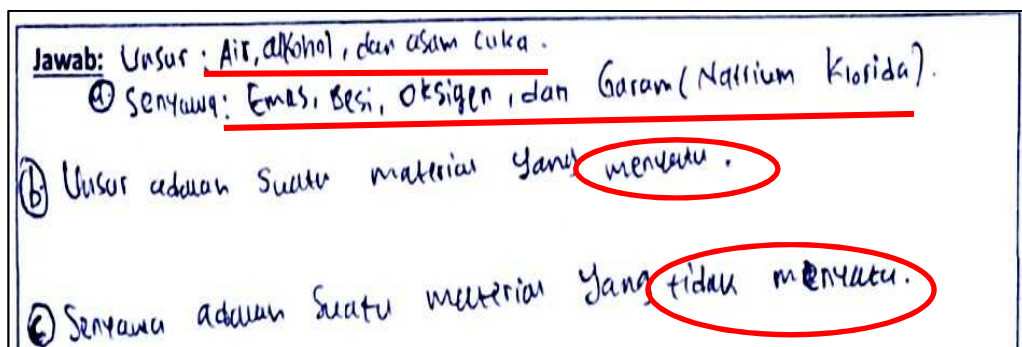 Jawab: Unsur : Air, alkohol, dan asam cuka.
ⓐ Senyawa: Emas, Besi, Oksigen, dan Garam (Natrium Klorida).
ⓑ Unsur adalah suatu material yang menyatu.
ⓒ Senyawa adalah suatu material yang tidak menyatu.